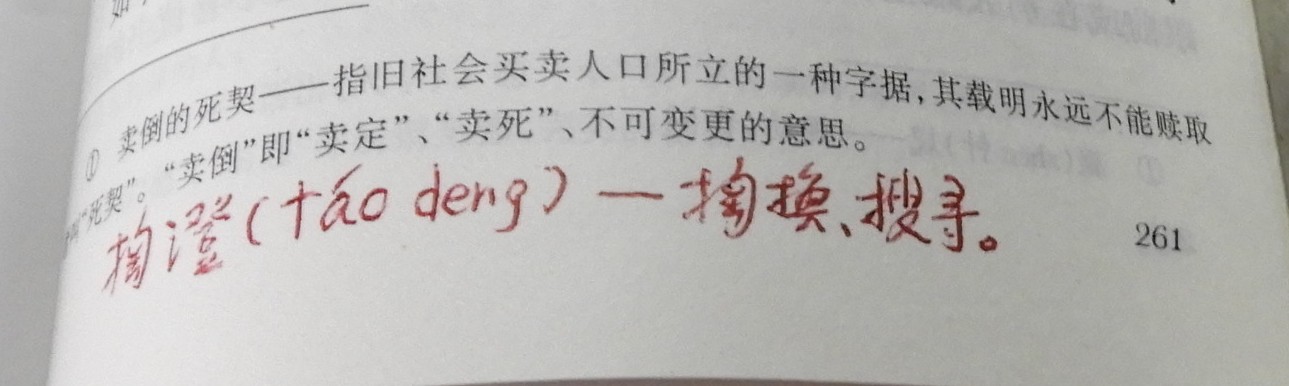 ① 卖倒的死契——指旧社会买卖人口所立的一种字据,其载明永远不能赎取
“死契”。“卖倒”即“卖定”、“卖死”、不可变更的意思。
掏澄(táo deng)—掏换、搜寻。
261